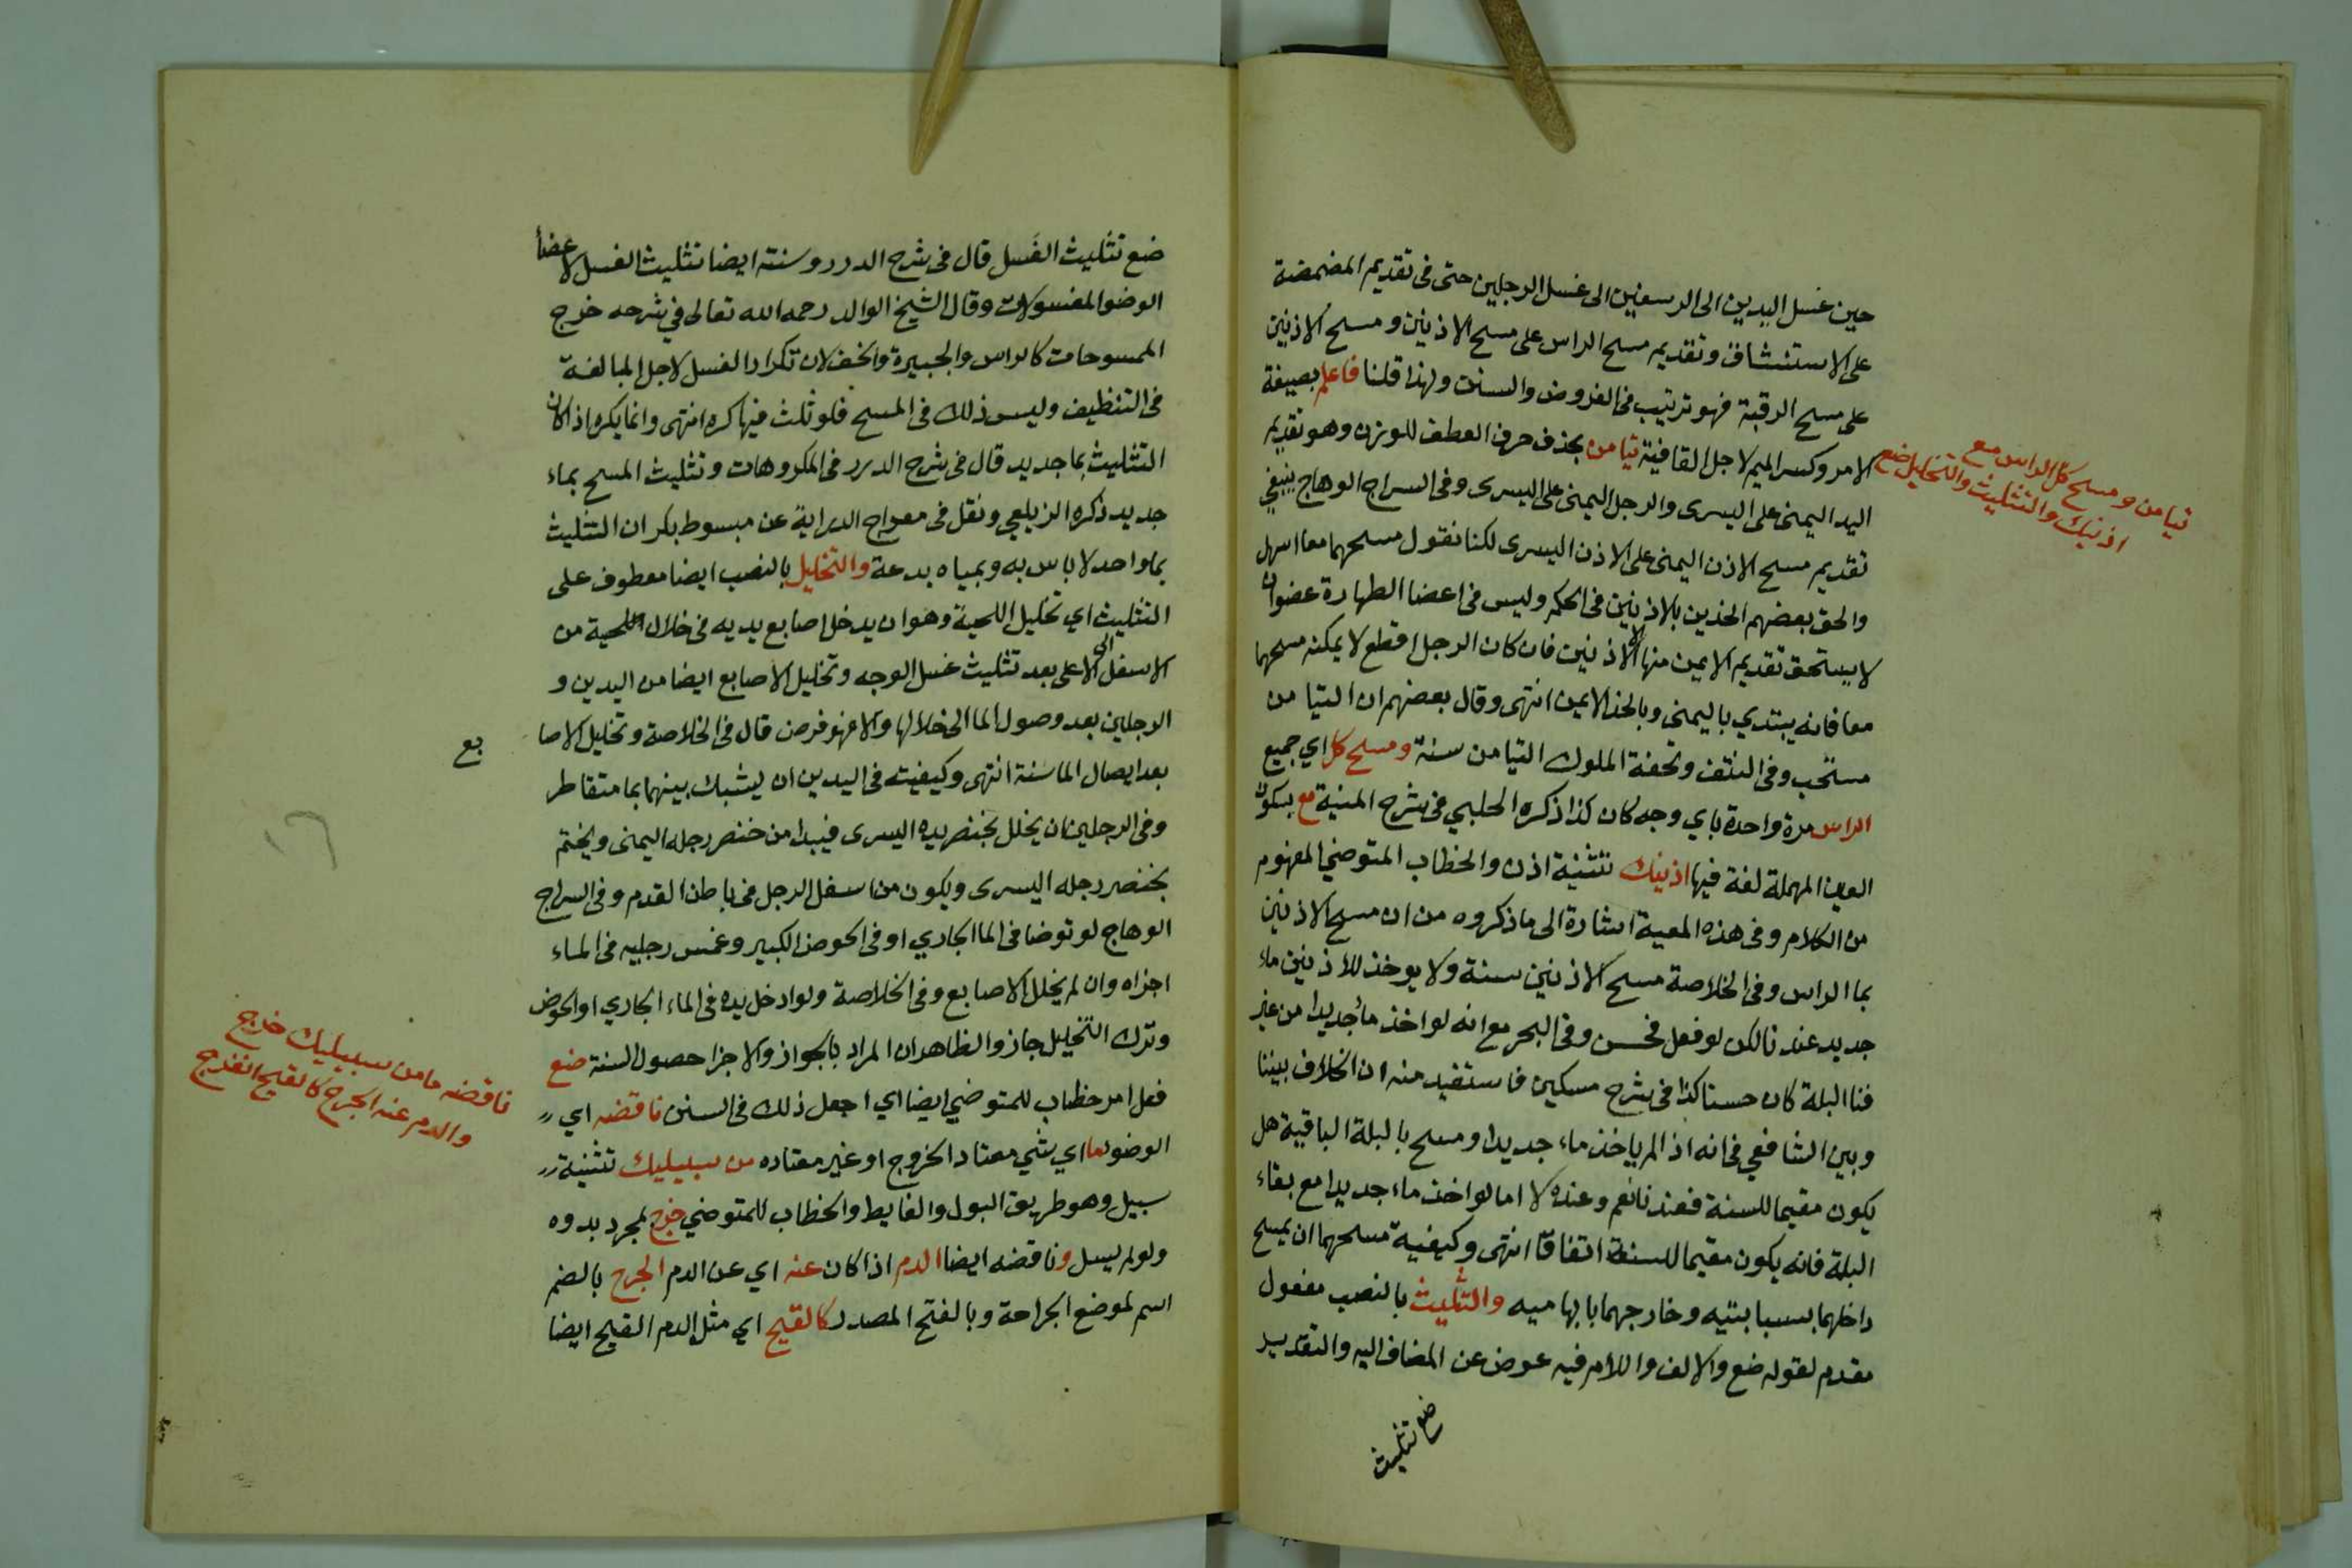 حين غسل اليدين الى الرسغين الى غسل الرجلين حتى فى تقديم المضمضة
على الاستنشاق وتقديم مسح الراس على مسح الاذنين ومسح الاذنين
على مسح الرقبة فهو ترتيب فى الفروض والسنن ولهذا قلنا فاعلم بصيغة
الامر وكسر الميم لاجل القافية تيامن بحذف حرف العطف للوزن وهو تقديم
اليد اليمنى على اليسرى والرجل اليمنى على اليسرى وفى السراج الوهاج ينبغي
تقديم مسح الاذن اليمنى على الاذن اليسرى لكنا نقول مسحهما معا اسهل
والحق بعضهم الخدين بالاذنين فى الحكم وليس فى اعضا الطهارة عضوان
لا يستحق تقديم الايمن منها الا الاذنين فان كان الرجل اقطع لا يمكنه مسحهما
معا فانه يبتدي باليمنى وبالخد الايمن انتهى وقال بعضهم ان التيامن
مستحب وفى النتف وتحفة الملوك التيامن سنة ومسح كل اي جميع
الراس مرة واحدة باي وجه كان كذا ذكره الحلبي فى شرح المنية مع بسكون
العين المهملة لغة فيها اذنيك تثنية اذن والخطاب المتوضي المفهوم
من الكلام وفى هذه المعية اشارة الى ما ذكروه من ان مسح الاذنين
بما الراس وفى الخلاصة مسح الاذنين سنة ولا يوخذ للاذنين ماء
جديد عندنا لكن لو فعل فحسن وفى البحر مع انه لو اخذ مأ جديدا من غير
فنا البلة كان حسنا كذا فى شرح مسكين فاستفيد منه ان الخلاف بيننا
وبين الشافعي فى انه اذا لم ياخذ ماء جديدا ومسح بالبلة الباقية هل
يكون مقيما للسنة فعندنا نعم وعنده لا اما لو اخذ ماء جديدا مع بقاء
البلة فانه يكون مقيما للسنة اتفاقا انتهى وكيفية مسحهما ان يمسح
داخلهما بسبابتيه وخارجهما بابهاميه والتثليث بالنصب مفعول
مقدم لقوله ضع والالف واللام فيه عوض عن المضاف اليه والتقدير
ضع تثليث
تيامن ومسح كل الراس مع
اذنيك والتثليث والتخليل ضع
ضع تثليث الغَسل قال فى شرح الدرر وسنته ايضا تثليث الغسل لاعضأ
الوضو المغسولات وقال الشيخ الوالد رحمه الله تعالى في شرحه خرج
الممسوحات كالراس والجبيرة والخف لان تكرار الغسل لاجل المبالغة
فى التنظيف وليس ذلك فى المسح فلو ثلث فيها كره انتهى وانما يكره اذا كان
التثليث بما جديد قال فى شرح الدرر فى المكروهات وتثليث المسح بماء
جديد ذكره الزيلعي ونقل فى معراج الدراية عن مبسوط بكر ان التثليث
بما واحد لا باس به وبمياه بدعة والتخليل بالنصب ايضا معطوف على
التثليث اي تخليل اللحية وهو ان يدخل اصابع يديه فى خلال اللحية من
الاسفل الى الاعلى بعد تثليث غسل الوجه وتخليل الاصابع ايضا من اليدين و
الرجلين بعد وصول الما الى خلالها والا فهو فرض قال فى الخلاصة وتخليل الاصا
بع
بعد ايصال الما سنة انتهى وكيفيته فى اليدين ان يشبك بينهما بما متقاطر
وفى الرجلين ان يخلل بخنصر يده اليسرى فيبدا من خنصر رجله اليمنى ويختم
بخنصر رجله اليسرى ويكون من اسفل الرجل فى باطن القدم وفى السراج
الوهاج لو توضا فى الما الجاري او فى الحوض الكبير وغمس رجليه فى الماء
اجزاه وان لم يخلل الاصابع وفى الخلاصة ولو ادخل يده فى الماء الجاري او الحوض
وترك التخليل جاز والظاهر ان المراد بالجواز والاجزا حصول السنة ضع
فعل امر خطاب للمتوضي ايضا اي اجعل ذلك فى السنن ناقضه اي
الوضو ما اي شي معتاد الخروج او غير معتاده من سبيليك تثنية
سبيل وهو طريق البول والغايط والخطاب للمتوضي خرج لمجرد بدوه
ولو لم يسل وناقضه ايضا الدم اذا كان عنه اي عن الدم الجرح بالضم
اسم لموضع الجراحة وبالفتح المصدر كالقيح اي مثل الدم القيح ايضا
ناقضه ما من سبيليك خرج
والدم عنه الجرح كالقيح انفرج
١٦